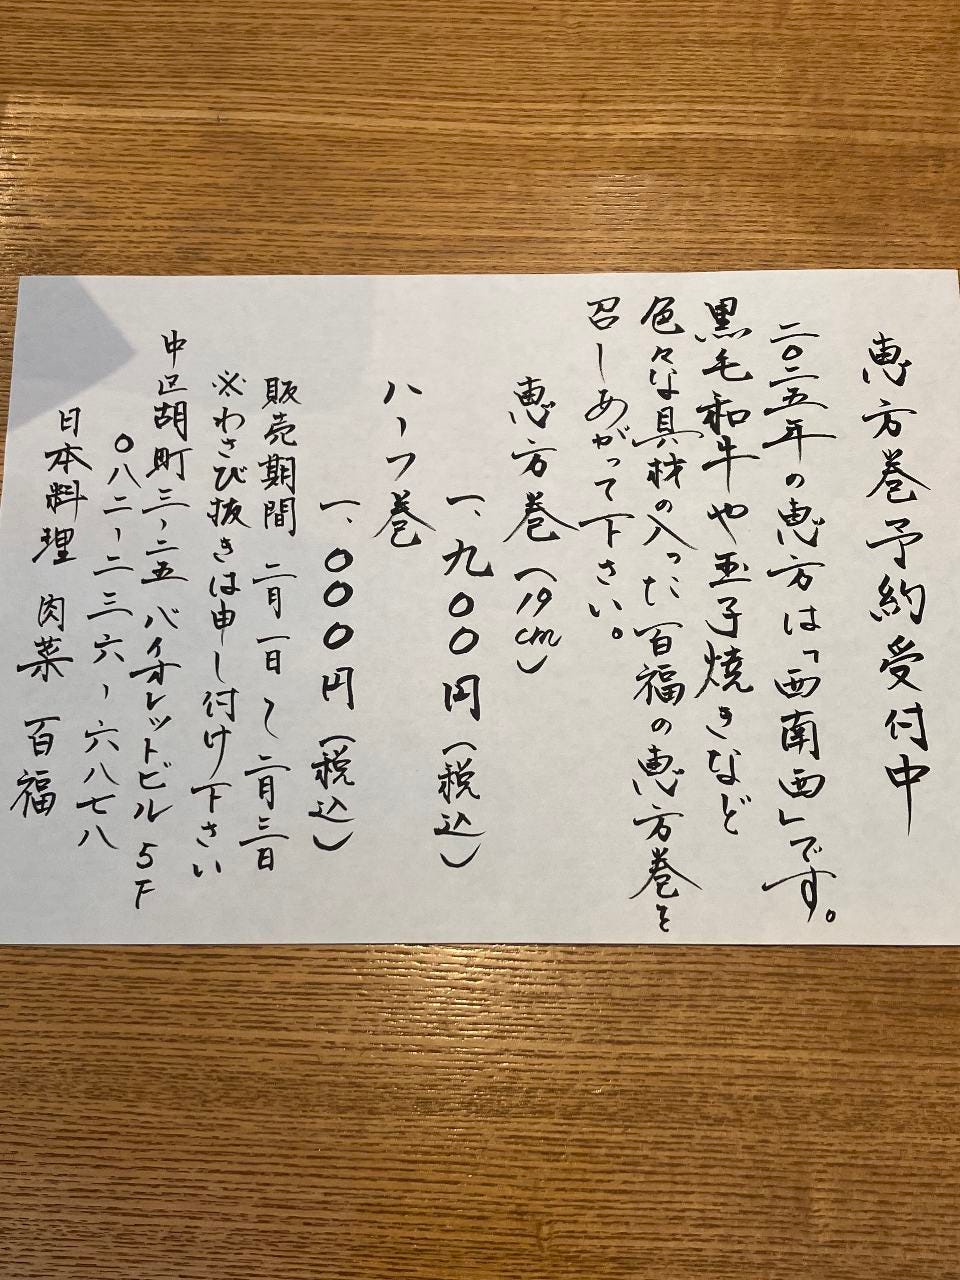 恵方巻予約受付中
二〇二五年の恵方は「西南西」です。
黒毛和牛や玉子焼きなど
色々な具材の入った百福の恵方巻を
召しあがって下さい。
恵方巻(19cm)
一、九〇〇円(税込)
ハーフ巻
一、〇〇〇円(税込)
販売期間 二月一日~二月三日
※わさび抜きは申し付け下さい
中区胡町三-二五バイオレットビル5F
〇八二-二三六-六八七八
日本料理 肉菜 百福